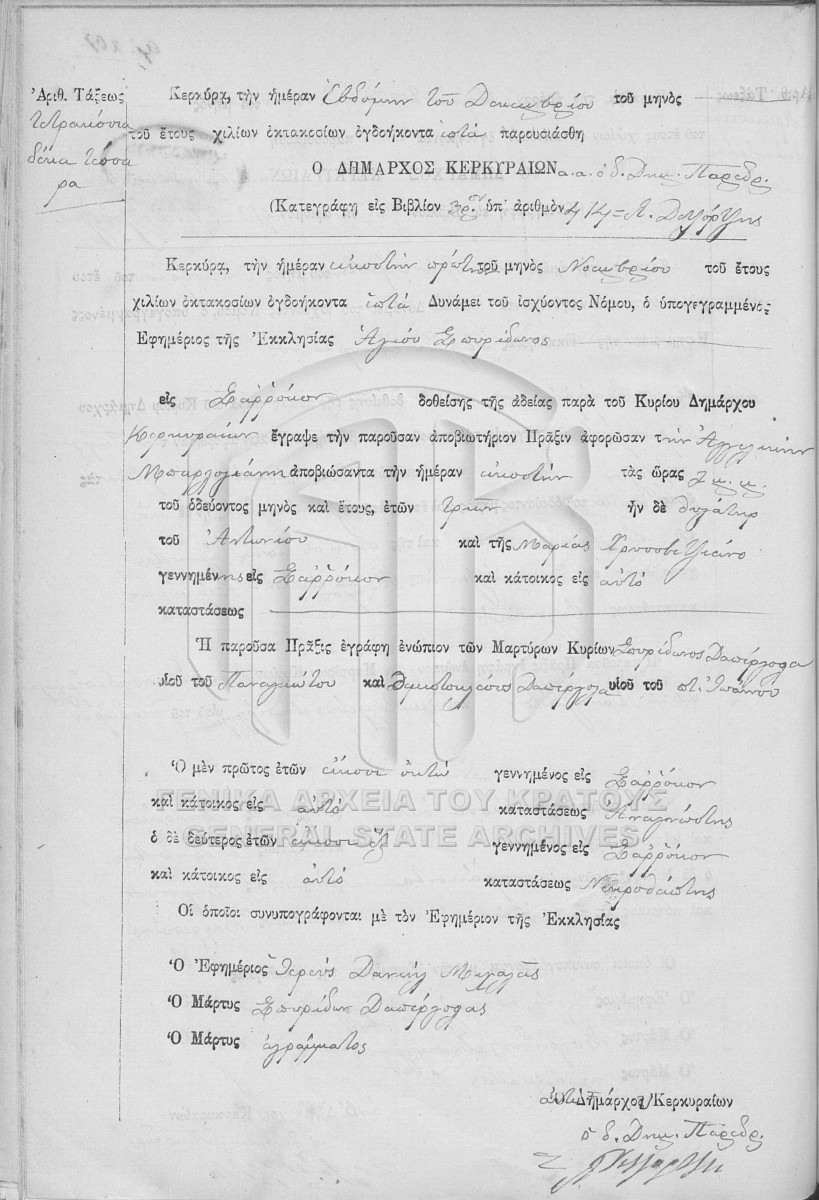 Ἀριθ. Τάξεως
τετρακόσια
δέκα τέσσα
ρα
Κερκύρα, τὴν ἡμέραν Ἑβδόμην τοῦ Δεκεμβρίου τοῦ μηνὸς
τοῦ ἔτους χιλίων ὀκτακοσίων ὀγδοήκοντα ἑπτὰ παρουσιάσθη
Ο ΔΗΜΑΡΧΟΣ ΚΕΡΚΥΡΑΙΩΝ α.α. ὁ δ. Δημ. Πάρεδρ.
(Κατεγράφη εἰς Βιβλίον 3ον ὑπ' ἀριθμὸν 414
Κερκύρα, τὴν ἡμέραν εἰκοστὴν πρώτην τοῦ μηνὸς Νοεμβρίου τοῦ ἔτους
χιλίων ὀκτακοσίων ὀγδοήκοντα ἑπτὰ Δυνάμει τοῦ ἰσχύοντος Νόμου, ὁ ὑπογεγραμμένος
Ἐφημέριος τῆς Ἐκκλησίας Ἁγίου Σπυρίδωνος
εἰς Σαῤῥόκον δοθείσης τῆς ἀδείας παρὰ τοῦ Κυρίου Δημάρχου
Κερκυραίων ἔγραψε τὴν παροῦσαν ἀποβιωτήριον Πρᾶξιν ἀφορῶσαν τὴν Ἀγγελικὴν
ἀποβιώσαντα τὴν ἡμέραν εἰκοστὴν τὰς ὥρας 2 μ. μ.
τοῦ ὁδεύοντος μηνὸς καὶ ἔτους, ἐτῶν τριῶν ἦν δὲ θυγάτηρ
τοῦ Ἀντωνίου καὶ τῆς Μαρίας
γεννημένης εἰς Σαῤῥόκον καὶ κάτοικος εἰς αὐτό
καταστάσεως
Ἡ παροῦσα Πρᾶξις ἐγράφη ἐνώπιον τῶν Μαρτύρων Κυρίων Σπυρίδωνος Δαπέργολα
υἱοῦ τοῦ Παναγιώτου καὶ Θεμιστοκλέους Δαπέργολα υἱοῦ τοῦ ποτ. Ἰωάννου
Ὁ μὲν πρῶτος ἐτῶν εἴκοσι ὀκτώ γεννημένος εἰς Σαῤῥόκον
καὶ κάτοικος εἰς αὐτό καταστάσεως Ἀναγνώστης
ὁ δὲ δεύτερος ἐτῶν εἴκοσι ἕξ γεννημένος εἰς Σαῤῥόκον
καὶ κάτοικος εἰς αὐτό καταστάσεως Νεκροθάπτης
Οἱ ὁποῖοι συνυπογράφονται μὲ τὸν Ἐφημέριον τῆς Ἐκκλησίας
Ὁ Ἐφημέριος Ἱερεὺς Δανιὴλ
Ὁ Μάρτυς Σπυρίδων Δαπέργολας
Ὁ Μάρτυς ἀγράμματος
Ὁ Δήμαρχος Κερκυραίων
ὁ δ. Δημ. Πάρεδρ.
ΓΕΝΙΚΑ ΑΡΧΕΙΑ ΤΟΥ ΚΡΑΤΟΥΣ
GENERAL STATE ARCHIVES